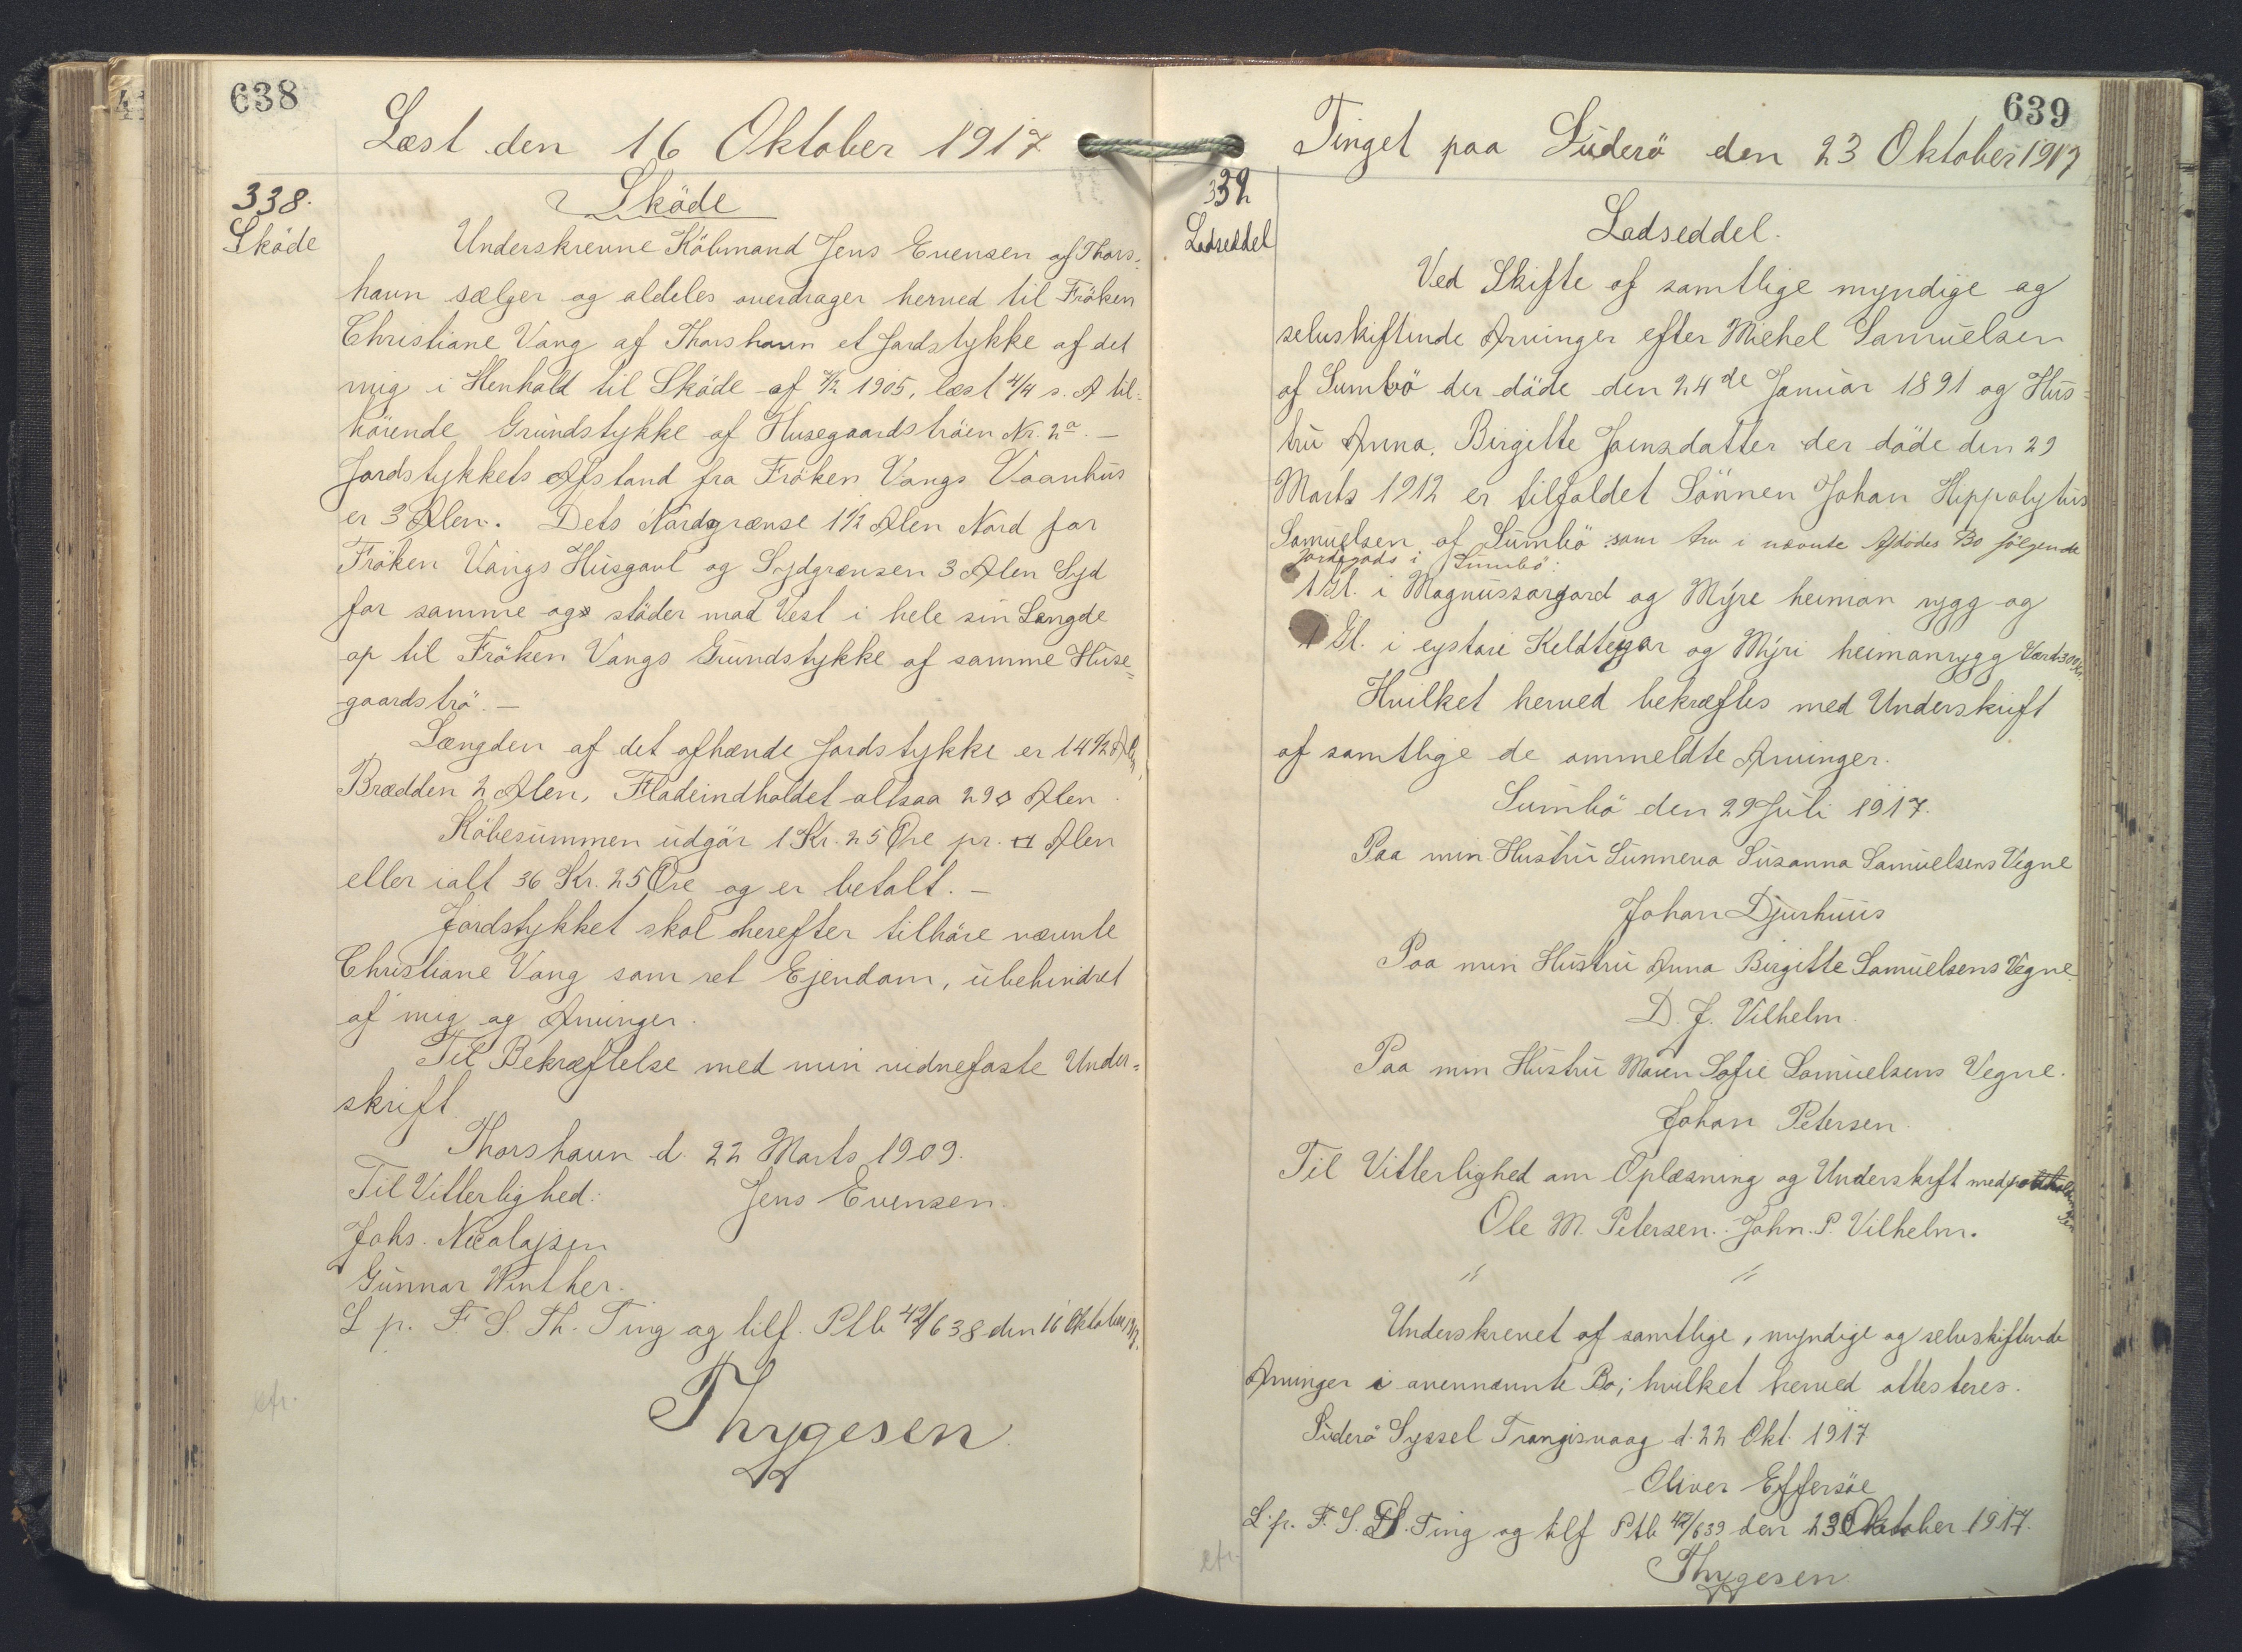 638
Læst den 16 Oktober 1917
338.
Sköde
Sköde
Underskrevne Köbmand Jens Evensen af Thors-
havn sælger og aldeles overdrager herved til Fröken
Christiane Vang af Thorshavn et Jordstykke af det
mig i Henhold til Sköde af 1905, læst 4/4 s. A til-
hörende Grundstykke af Husegaardströen Nr. 2a. —
Jordstykkets Afstand fra Fröken Vangs Vaanhus
er 3 Alen. Dets Nordgrænse 1 1/2 Alen Nord for
Fröken Vangs Husgavl og Sydgrænsen 3 Alen Syd
for samme og stöder mod Vest i hele sin Længde
op til Fröken Vangs Grundstykke af samme Huse-
gaardströ. —
Længden af det afhænde Jordstykke er 14 1/2 Alen
Brædden 2 Alen, Fladeindholdet altsaa 29 □ Alen
Köbesummen udgör 1 Kr. 25 Øre pr. □ Alen
eller ialt 36 Kr. 25 Øre og er betalt. —
Jordstykket skal herefter tilhöre nævnte
Christiane Vang som ret Ejendom, ubehindret
af mig og Arvinger.
Til Bekræftelse med min vidnefaste Under-
skrift
Thorshavn d. 22 Marts 1909.
Til Vitterlighed: Jens Evensen.
Johs. Nicolajsen
Gunnar Winther.
L p. F. S. Th. Ting og tilf. Ptb 42/638 den 16 Oktober 1917.
Thygesen
cfr.
639
Tinget paa Suderö den 23 Oktober 1917
339
Ladseddel
Ladseddel.
Ved Skifte af samtlige myndige og
selvskiftende Arvinger efter Michel Samuelsen
af Sumbö der döde den 24de Januar 1891 og Hus-
tru Anna Birgitte Joensdatter der döde den 29
Marts 1912 er tilfaldet Sönnen Johan Hippolytus
Samuelsen af Sumbö som Arv i nævnte Afdödes Bo fölgende
Jordegods i Sumbö:
1 Gl. i Magnussargard og Mýre heiman rygg og
1 Gl. i eystari Keldtegar og Mýri heimanrygg Værd 300 Kr.
Hvilket herved bekræftes med Underskrift
af samtlige de ommeldte Arvinger.
Sumbö den 29 Juli 1917.
Paa min Hustru Sunneva Susanna Samuelsens Vegne
Johan Djurhuus
Paa min Hustru Anna Birgitte Samuelsens Vegne
D. J. Vilhelm.
Paa min Hustru Maren Sofie Samuelsens Vegne.
Johan Petersen.
Til Vitterlighed om Oplæsning og Underskrift
Ole M. Petersen. John. P. Vilhelm.
" "
Underskrevet af samtlige, myndige og selvskiftende
Arvinger i ovennævnte Bo; hvilket herved attesteres.
Suderö Syssel Trangisvaag d. 22 Okt. 1917
Oliver Effersöe
L. p. F. S. Ting og tilf Ptb 42/639 den 23 Oktober 1917.
Thygesen
cfr.